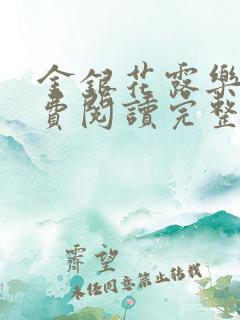 金銀花露樂
費閱讀完整
霽望
未經同意禁止轉載